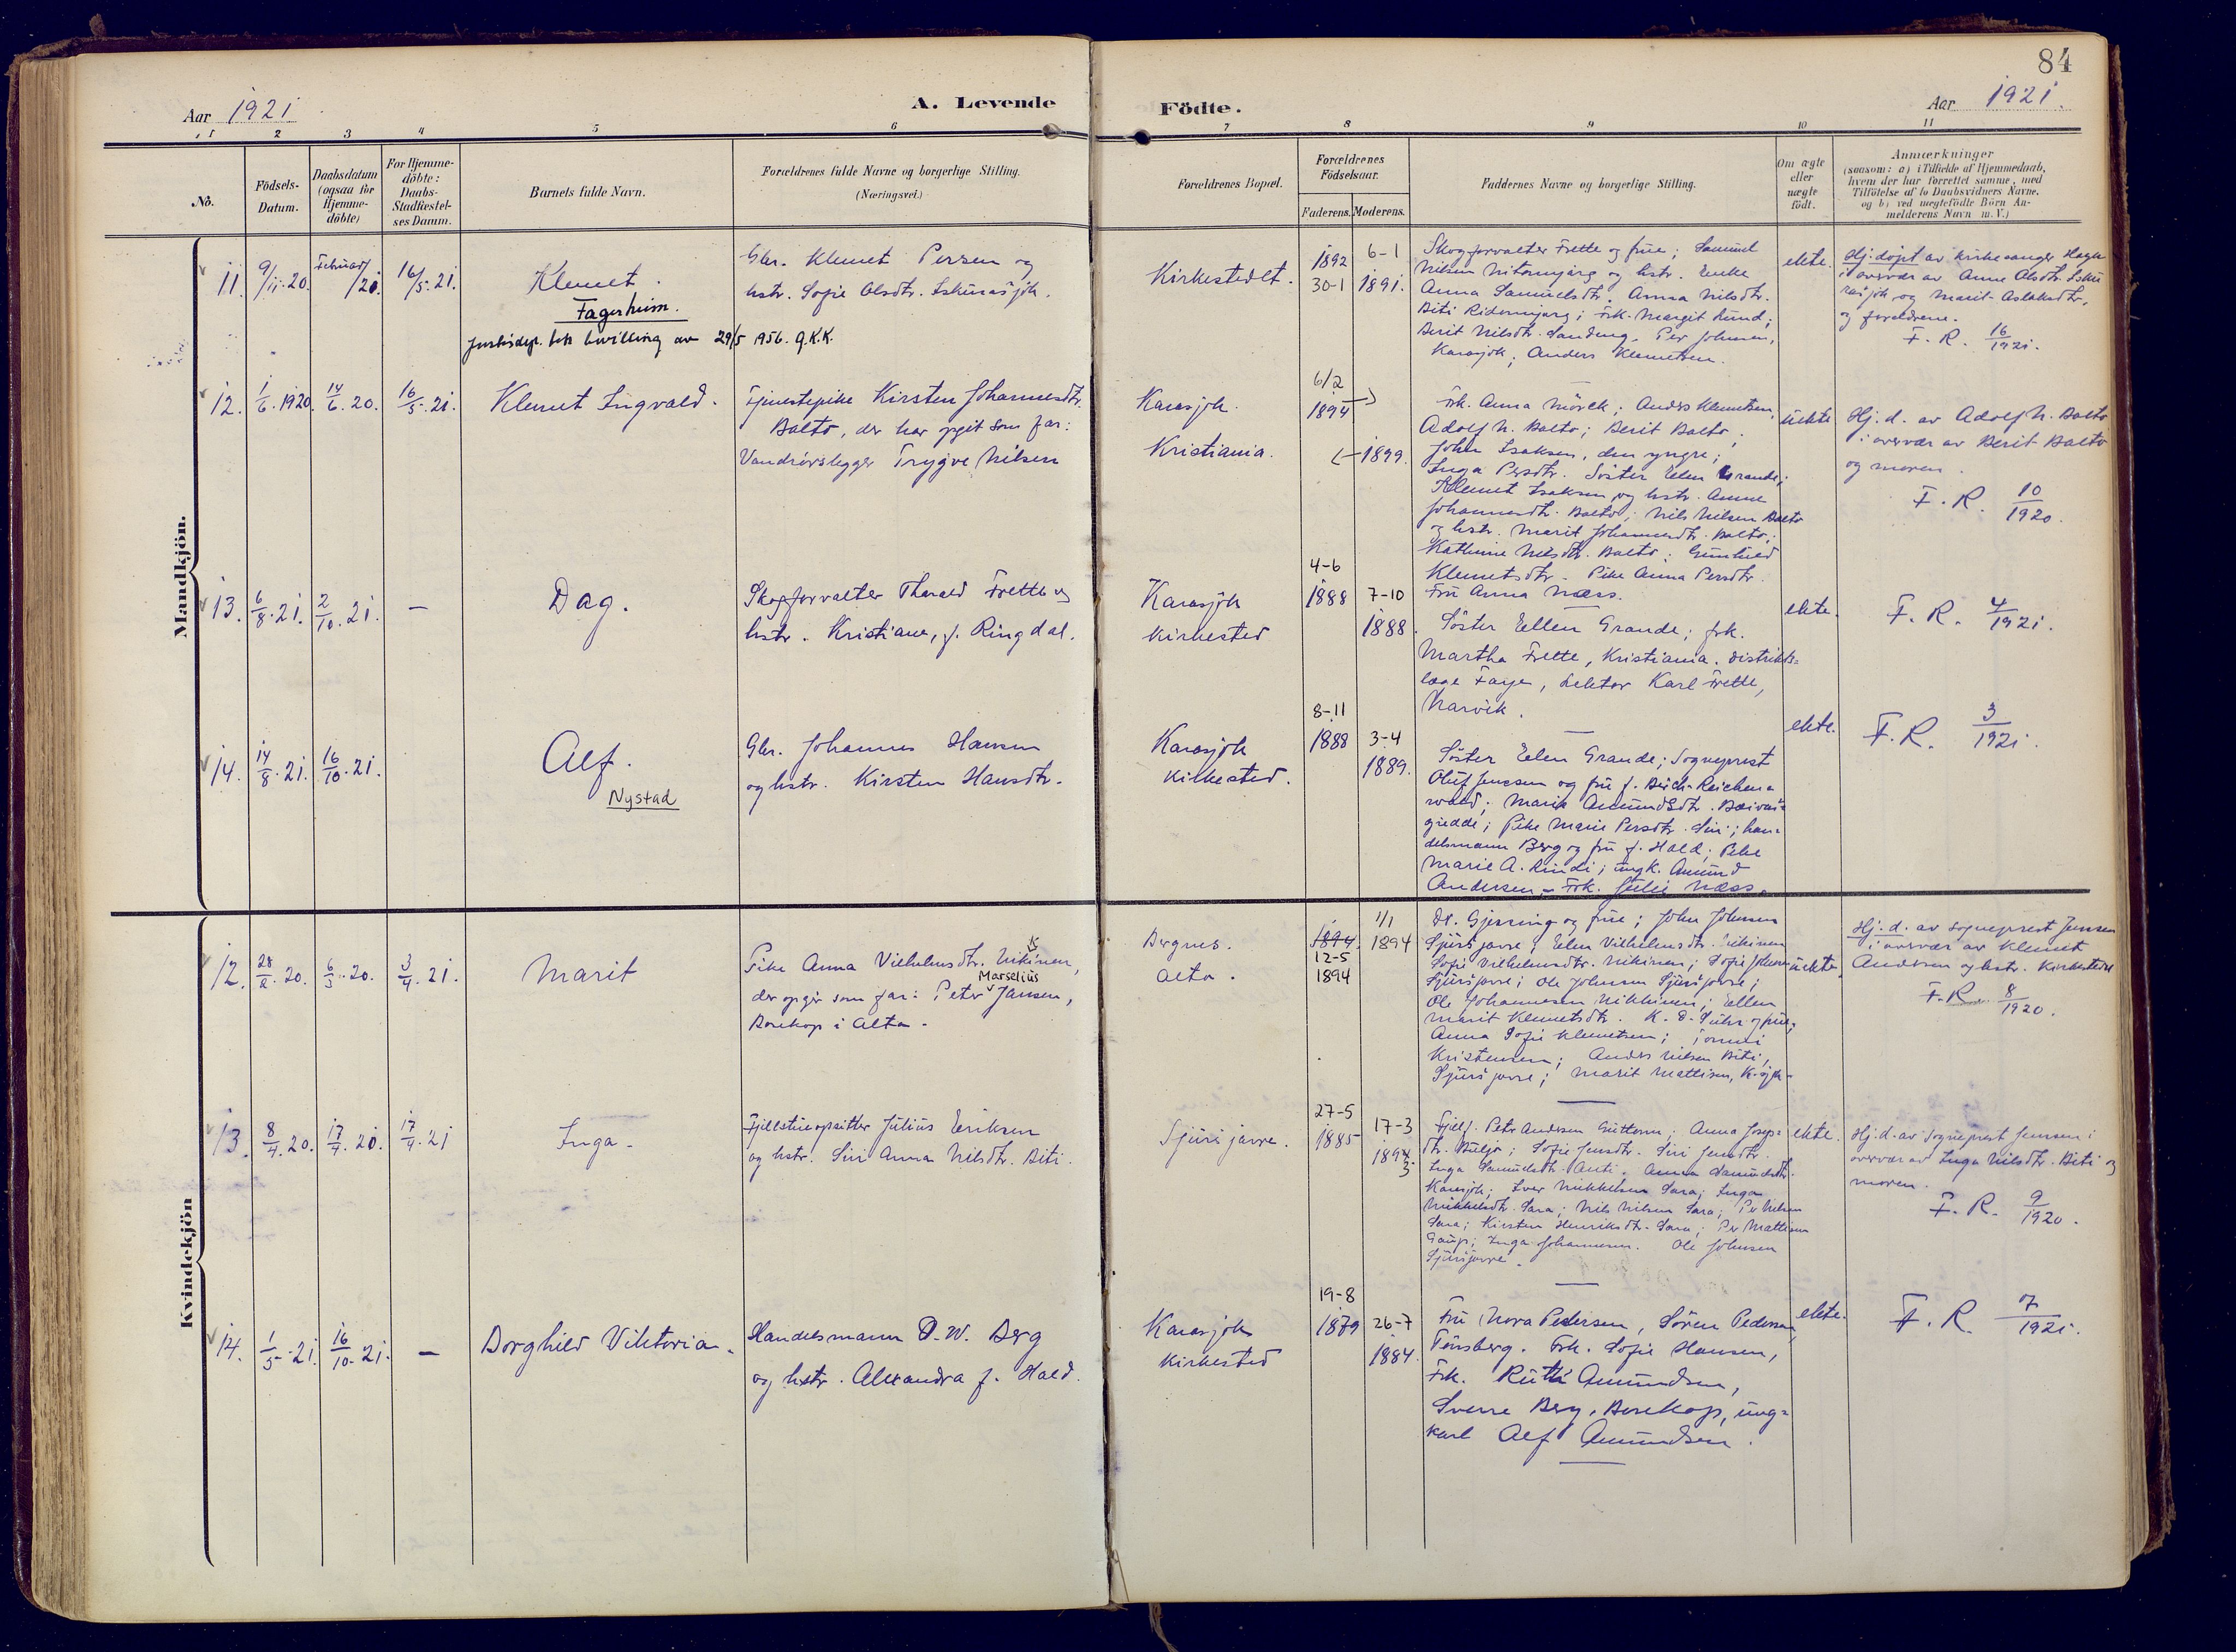 84
Aar 1921
A. Levende
Födte.
Aar 1921.
1 2 3 4 5 6 7 8 9 10 11
No.
Födsels-
Datum.
Daabsdatum
(ogsaa for
Hjemme-
döbte)
For Hjemme-
döbte:
Daabs-
Stadfæstel-
ses Datum.
Barnets fulde Navn.
Forældrenes fulde Navne og borgerlige Stilling.
(Næringsvei.)
Forældrenes Bopæl.
Forældrenes
Födselsaar.
Faderens. Moderens.
Faddernes Navne og borgerlige Stilling.
Om ægte
eller
uægte
födt.
Anmærkninger
(saasom: a) i Tilfælde af Hjemmedaab,
hvem der har forrettet samme, med
Tilföielse af to Daabsvidners Navne.
og b) ved uægtefödte Börn An-
melderens Navn m. V.)
Mandkjön.
11. 9/11. 20. Februar/20. 16/5. 21.
Klemet.
Fagerheim.
Justisdep. bevilling av 29/5 1956. G.K.K.
Gbr. Klemet Persen og
hstr. Sofie Olsdtr. Iskurasjok.
Kirkestedet.
1892
30-1
6-1
1891.
Skogforvalter Frette og frue; Samuel
Nilsen Nitornjarg og hstr. Enke
Anna Samuelsdtr. Anna Nilsdtr.
Biti Ridomnjarg; Frk. Margit Lund;
Berit Nilsdtr. Sandeng. Per Johnsen,
Karasjok; Anders Klemetsen.
ekte.
Hj. döpt av kirkesanger Haga
i overvær av Anne Olsdtr. Isku
rasjok og Marit Aslaksdtr.
og foreldrene.
F. R. 16/1921.
12. 1/6. 1920. 14/6. 20. 16/5. 21.
Klemet Ingvald.
Tjenestepike Kirsten Johannesdtr.
Balto, der har opgit som far:
Vandrörslegger Trygve Nilsen
Karasjok.
Kristiania.
6/2
1894
1899.
Frk. Anna Mörck; Anders Klemetsen,
Adolf N. Balto; Berit Balto;
John Isaksen, den yngre;
Inga Persdtr. Söster Ellen Grande;
Klemet Isaksen og hstr. Anne
Johannesdtr. Balto; Nils Nilsen Balto
og hstr. Marit Johannesdtr. Balto;
Kathrine Nilsdtr. Balto; Gunhild
Klemetsdtr. Pike Anna Persdtr.
Fru Anna Næss.
uekte
Hj. d. av Adolf N. Balto
i overvær av Berit Balto
og moren.
F. R. 10/1920.
13. 6/8. 21. 2/10. 21. –
Dag.
Skogforvalter Thorald Frette og
hstr. Kristiane, f. Ringdal.
Karasjok
kirkested
4-6
1888
7-10
1888.
Söster Ellen Grande; frk.
Martha Frette, Kristiania. Distrikts-
læge Faye, Lektor Karl Frette,
Narvik.
ekte.
F. R. 4/1921.
14. 14/8. 21. 16/10. 21.
Alf.
Nystad
Gbr. Johannes Hansen
og hstr. Kirsten Hansdtr.
Karasjok
kirkested.
8-11
1888
3-4
1889.
Söster Ellen Grande; Sogneprest
Oluf Jenssen og fru f. Birch-Reichen-
wald; Marie Amundsdtr. Baivas-
giedde; Pike Marie Persdtr. Siri; han-
delsmann Berg og fru f. Hald; Pike
Marie A. Lindi; ungk. Amund
Andersen – Frk. Julie Næss.
ekte.
F. R. 3/1921.
Kvindekjön
12. 28/2. 20. 6/3. 20. 3/4. 21.
Marit
Pike Anna Vilhelmsdtr. Nikinen,
der opgir som far: Peter Marselius Jansen,
Bosekop i Alta.
Bergnes.
Alta.
1894.
12-5
1894
1/1
1894
Dr. Gjessing og frue; John Johnsen
Sjursjavre; Elen Vilhelmsdtr. Nikinen
Sofie Vilhelmsdtr. Nikinen; Sofie Johnsen
Sjursjavre; Ole Johnsen Sjursjavre;
Ole Johannesen Nikkinen; Ellen
Marit Klemetsdtr. K. D. Suhr og frue;
Anna Sofie Klemetsen;
Kristensen; Anders Nilsen Biti,
Sjursjavre; Marit Mattisen, K.sjok.
uekte.
Hj. d. av sogneprest Jenssen
i overvær av Klemet
Andersen og hstr. kirkestedet
F. R. 8/1920.
13. 8/4. 20. 17/4. 20. 17/4. 21
Inga.
Fjellstueopsitter Julius Eriksen
og hstr. Siri Anna Nilsdtr. Biti.
Sjursjavre.
27-5
1885
17-3
1894
3
Fjellf. Petr Andersen Guttorm; Anna Josep-
dtr. Buljo; Sofie Jensdtr. Siri Jensdtr.
Inga Samuelsdtr. Anti. Anna Samuelsdtr.
Karasjok; Iver Mikkelsen Sara; Inga
Mikkelsdtr. Sara; Nils Nilsen Sara; Per Nilsen
Sara; Kirsten Henriksdtr. Sara; Per Mattisen
Gaup; Inga Johannesen. Ole Johnsen
Sjursjavre.
ekte.
Hj. d. av Sogneprest Jenssen i
overvær av Inga Nilsdtr. Biti og
moren.
F. R. 9/1920.
14. 1/5. 21. 16/10. 21. –
Borghild Viktoria.
Handelsmann O. W. Berg
og hstr. Alexandra f. Hald.
Karasjok
kirkested
19-8
1879
26-7
1884.
Fru Nora Pedersen, Sören Pedersen,
Tönsberg. Frk. Sofie Hansen,
Frk. Ruth Amundsen,
Sverre Berg, Bosekop, ung-
karl Alf Amundsen.
ekte.
F. R. 7/1921.